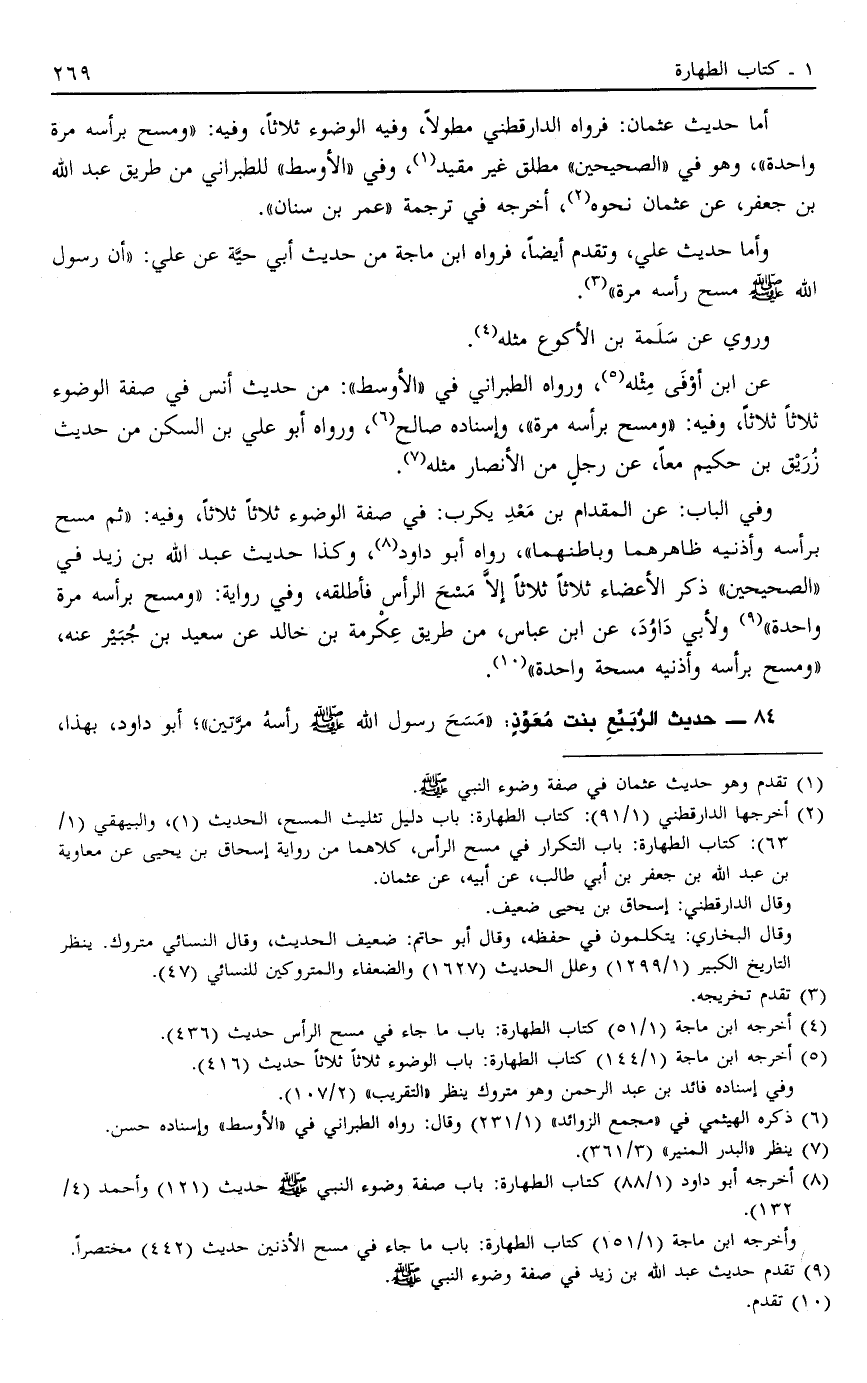 ١ - كتاب الطهارة ٢٦٩
أما حديث عثمان: فرواه الدارقطني مطولاً، وفيه الوضوء ثلاثاً، وفيه: «ومسح برأسه مرة
واحدة»، وهو في «الصحيحين» مطلق غير مقيد(١)، وفي «الأوسط» للطبراني من طريق عبد الله
بن جعفر، عن عثمان نحوه(٢)، أخرجه في ترجمة «عمر بن سنان».
وأما حديث علي، وتقدم أيضاً، فرواه ابن ماجة من حديث أبي حيَّة عن علي: «أن رسول
الله ﷺ مسح رأسه مرة»(٣).
وروي عن سَلَمة بن الأكوع مثله(٤).
عن ابن أوْفَى مِثْله(٥)، ورواه الطبراني في «الأوسط»: من حديث أنس في صفة الوضوء
ثلاثاً ثلاثاً، وفيه: «ومسح برأسه مرة»، وإسناده صالح(٦)، ورواه أبو علي بن السكن من حديث
زُرَيْق بن حكيم معاً، عن رجلٍ من الأنصار مثله(٧).
وفي الباب: عن المقدام بن مَعْدِ يكرب: في صفة الوضوء ثلاثاً ثلاثاً، وفيه: «ثم مسح
برأسه وأذنيه ظاهرهما وباطنهما»، رواه أبو داود(٨)، وكذا حديث عبد الله بن زيد في
«الصحيحين» ذكر الأعضاء ثلاثاً ثلاثاً إلاَّ مَسْحَ الرأس فأطلقه، وفي رواية: «ومسح برأسه مرة
واحدة»(٩) ولأبي دَاوُدَ، عن ابن عباس، من طريق عِكْرمة بن خالد عن سعيد بن جُبَيْر عنه،
«ومسح برأسه وأذنيه مسحة واحدة»(١٠).
٨٤ ـ حديث الرُّبَيِّعِ بنت مُعَوِّذٍ: «مَسَحَ رسول الله ﷺ رأسهُ مرَّتين»؛ أبو داود، بهذا،
(١) تقدم وهو حديث عثمان في صفة وضوء النبي ﷺ.
(٢) أخرجها الدارقطني (٩١/١): كتاب الطهارة: باب دليل تثليث المسح، الحديث (١)، والبيهقي (١/
٦٣): كتاب الطهارة: باب التكرار في مسح الرأس، كلاهما من رواية إسحاق بن يحيى عن معاوية
بن عبد الله بن جعفر بن أبي طالب، عن أبيه، عن عثمان.
وقال الدارقطني: إسحاق بن يحيى ضعيف.
وقال البخاري: يتكلمون في حفظه، وقال أبو حاتم: ضعيف الحديث، وقال النسائي متروك. ينظر
التاريخ الكبير (١٢٩٩/١) وعلل الحديث (١٦٢٧) والضعفاء والمتروكين للنسائي (٤٧).
(٣) تقدم تخريجه.
(٤) أخرجه ابن ماجة (٥١/١) كتاب الطهارة: باب ما جاء في مسح الرأس حديث (٤٣٦).
(٥) أخرجه ابن ماجة (١٤٤/١) كتاب الطهارة: باب الوضوء ثلاثاً ثلاثاً حديث (٤١٦).
وفي إسناده فائد بن عبد الرحمن وهو متروك ينظر «التقريب» (١٠٧/٢).
(٦) ذكره الهيثمي في «مجمع الزوائد» (٢٣١/١) وقال: رواه الطبراني في «الأوسط» وإسناده حسن.
(٧) ينظر «البدر المنير» (٣٦١/٣).
(٨) أخرجه أبو داود (٨٨/١) كتاب الطهارة: باب صفة وضوء النبي ﷺ حديث (١٢١) وأحمد (٤/
١٣٢).
وأخرجه ابن ماجة (١٥١/١) كتاب الطهارة: باب ما جاء في مسح الأذنين حديث (٤٤٢) مختصراً.
(٩) تقدم حديث عبد الله بن زيد في صفة وضوء النبي ﷺ.
(١٠) تقدم.